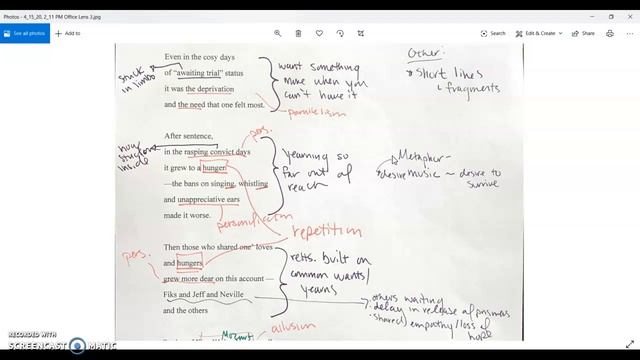 Photos - 4_15_20, 2_11 PM Office Lens 3.jpg
Share
Edit & Create
Share
Even in the cosy days
of "awaiting trial" status
it was the deprivation
and the need that one felt most.
stuck
in limbo
want something
more when you
can't have it
parallelism
Other:
short lines
fragments
After sentence,
in the rasping convict days
it grew to a hunger
—the bans on singing, whistling
and unappreciative ears
made it worse.
now
inside
pers.
yearning so
far out of
reach
personification
repetition
Metaphor -
desire music ~ desire to
survive
Then those who shared one's loves
and hungers
grew more dear on this account—
Fiks and Jeff and Neville
and the others
pers.
relts. built on
common wants/
yearns
others waiting
delay in release of prisoners
(shared) empathy/loss of
hope
Mozart
allusion
RECORDED WITH
SCREENCAST MATIC